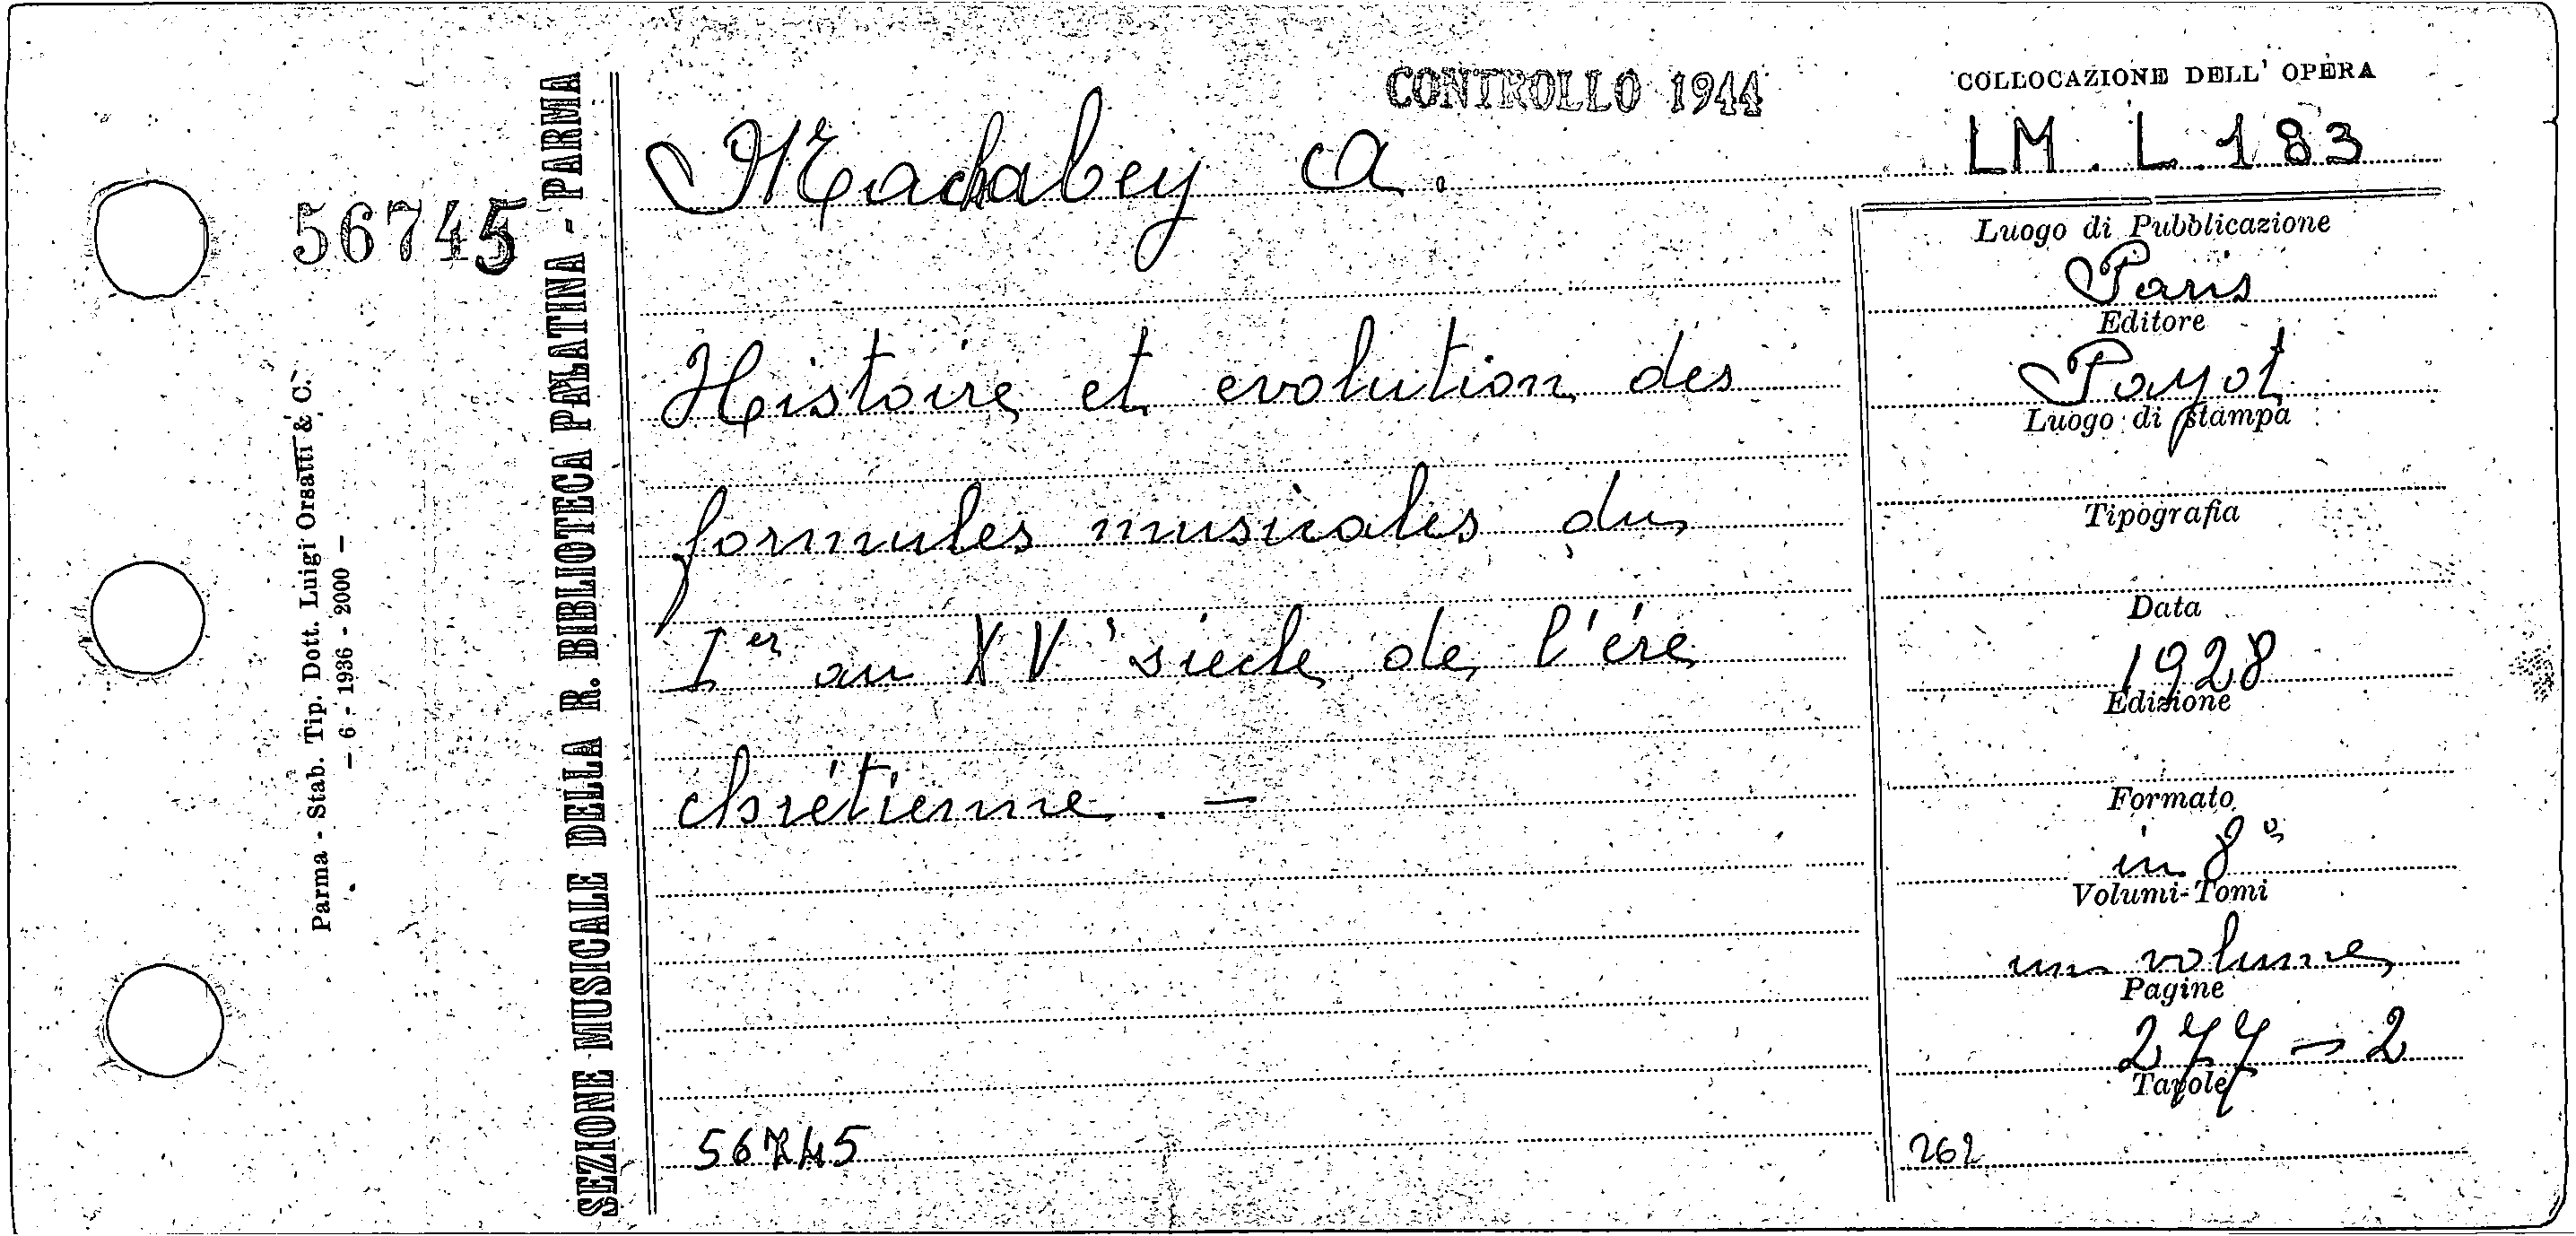 56745
Parma - Stab. Tip. Dott. Luigi Orsatti & C.
— 6 - 1936 - 2000 —
SEZIONE MUSICALE DELLA R. BIBLIOTECA PALATINA - PARMA
CONTROLLO 1944
Machabey A.
Histoire et evolution des
formules musicales du
Ier au XV' siecle de l'ére
chrétienne. —
56745
COLLOCAZIONE DELL' OPERA
LM. L. 183
Luogo di Pubblicazione
Paris
Editore
Payot
Luogo di stampa
Tipografia
Data
1928
Edizione
Formato
in 8º
Volumi-Tomi
un volume
Pagine
277 - 2
Tavole
262